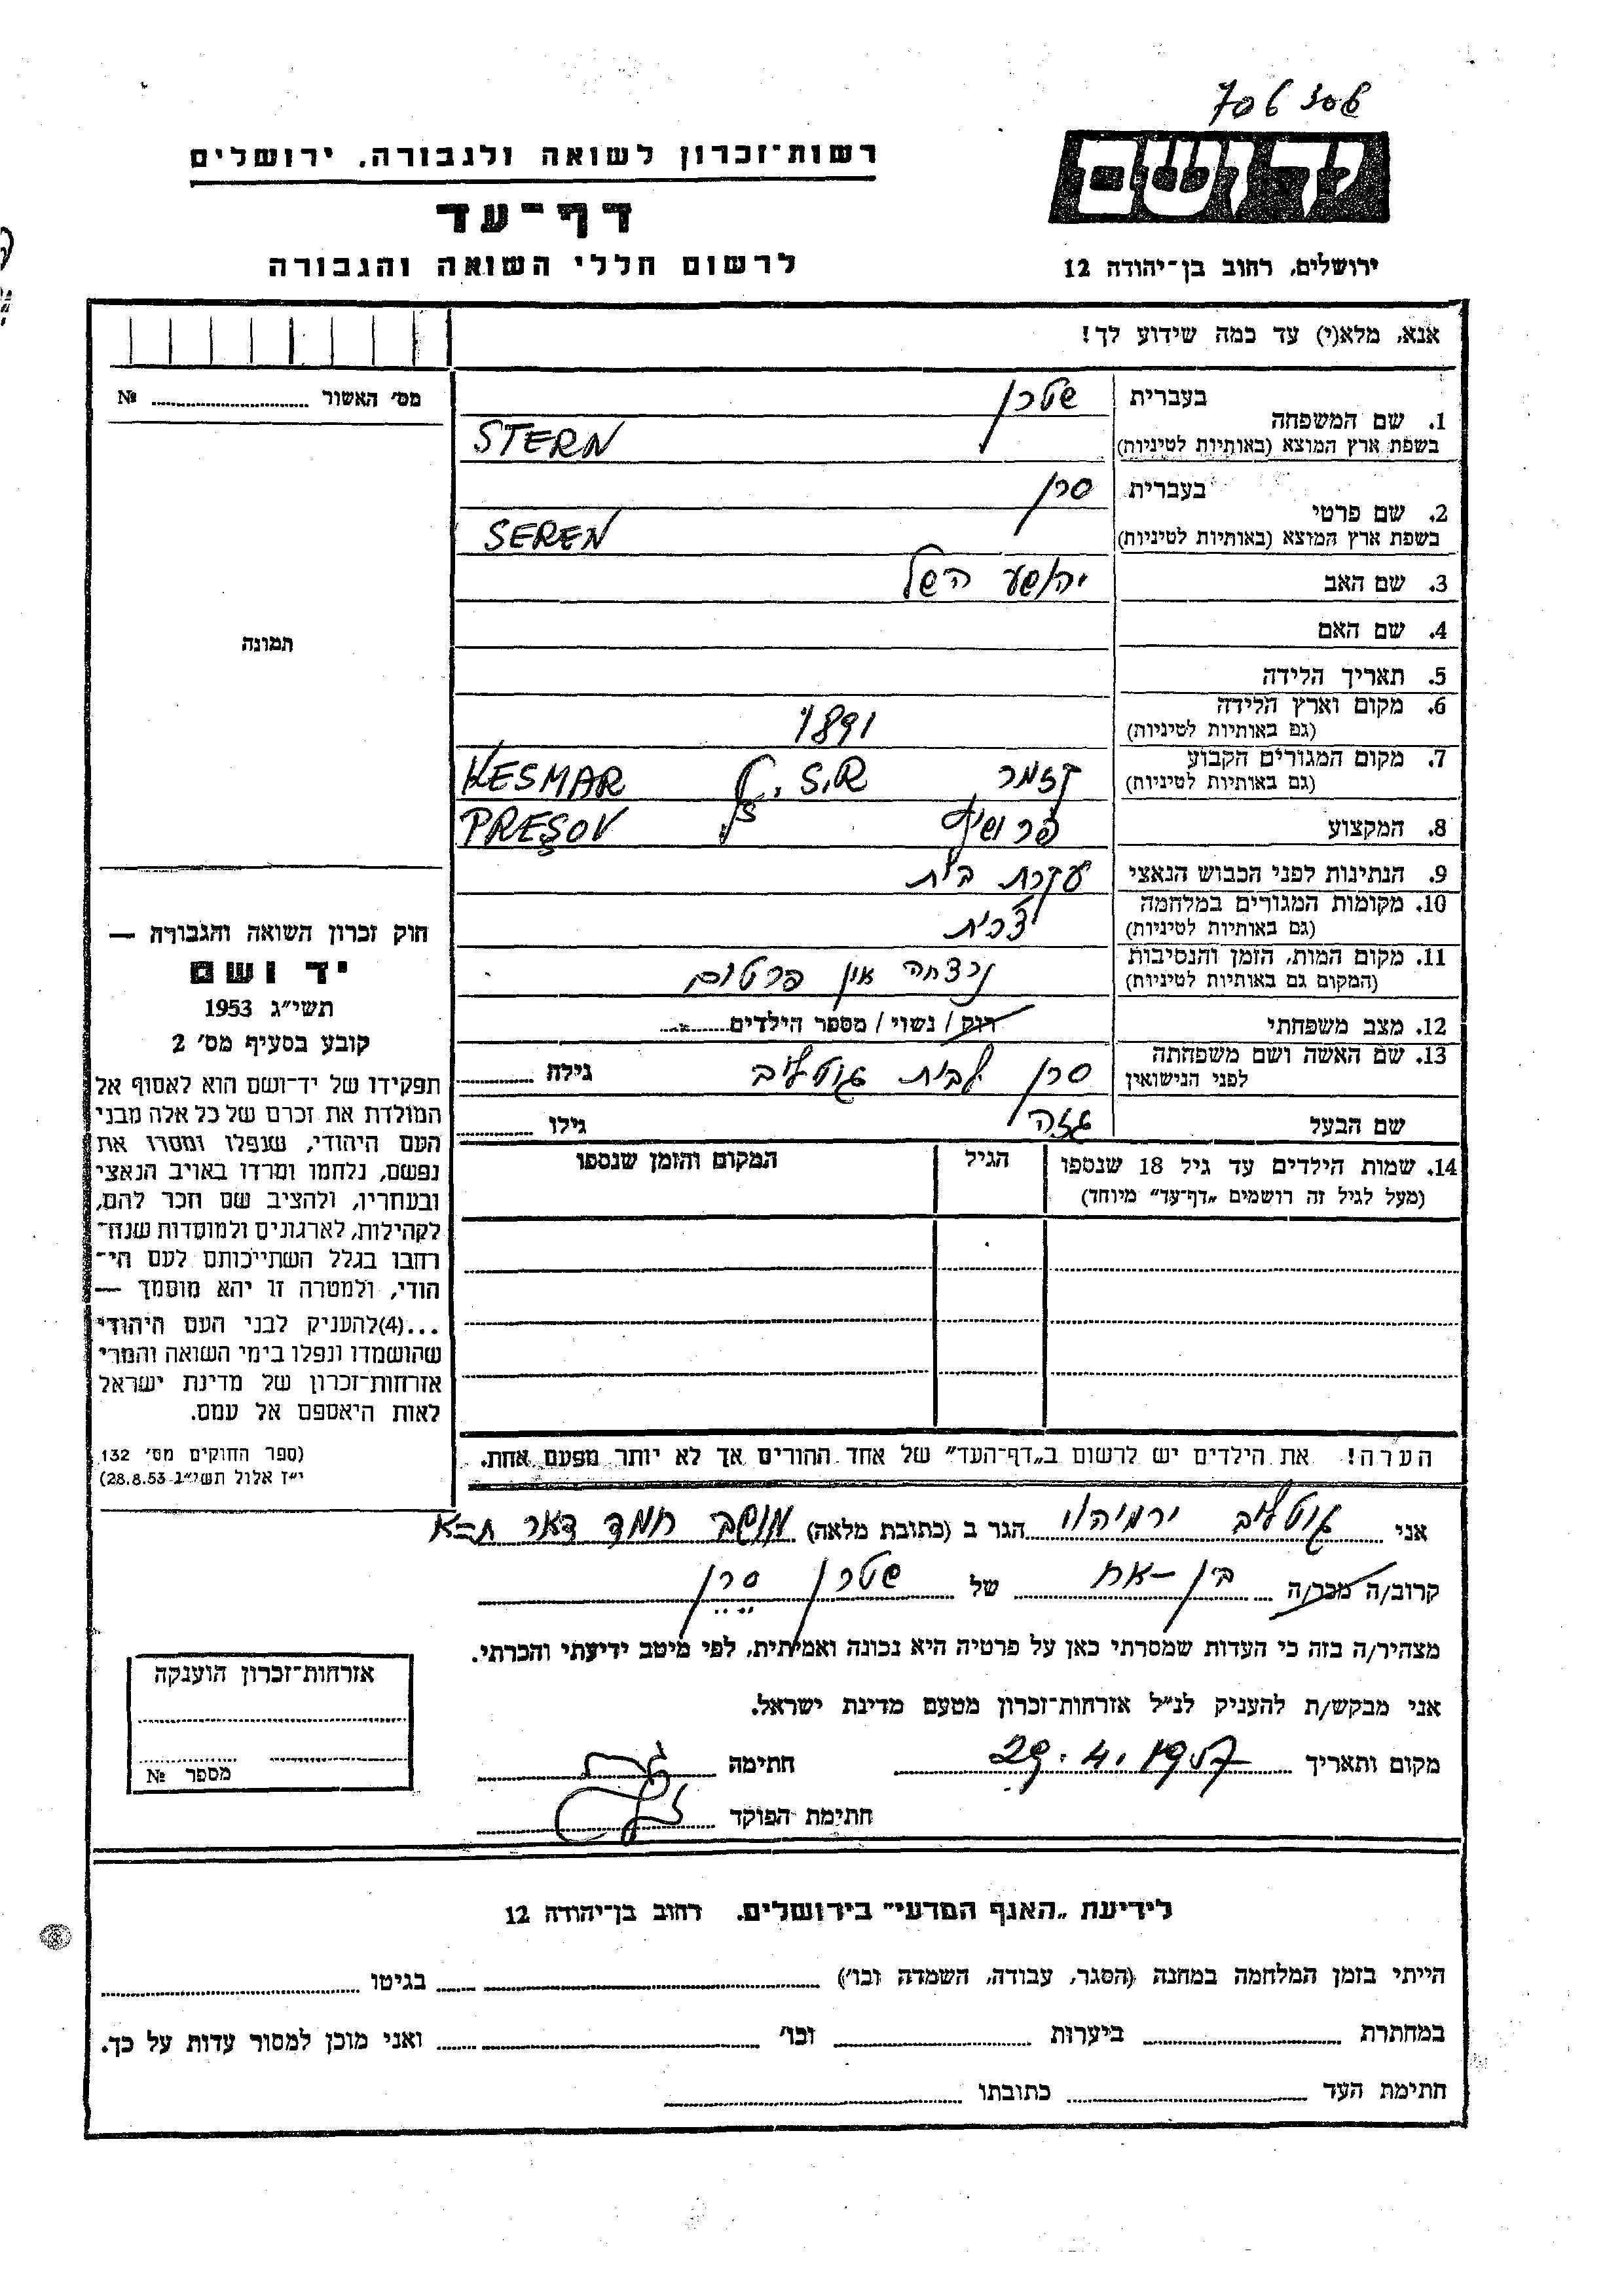 306 706
רשות־זכרון לשואה ולגבורה, ירושלים
ידושם
דף־עד
לרשום חללי השואה והגבורה
ירושלים, רחוב בן־יהודה 12
אנא, מלא(י) עד כמה שידוע לך!
מס׳ האשור № 
1. שם המשפחה
בעברית שטרן
בשפת ארץ המוצא (באותיות לטיניות) STERN
2. שם פרטי
בעברית סרן
בשפת ארץ המוצא (באותיות לטיניות) SEREN
3. שם האב יהושע השל
4. שם האם
5. תאריך הלידה
6. מקום וארץ הלידה 1891
(גם באותיות לטיניות)
7. מקום המגורים הקבוע קזמר Č.S.R KESMAR
(גם באותיות לטיניות)
8. המקצוע פרושוף PREŞOV
9. הנתינות לפני הכבוש הנאצי עקרת בית
10. מקומות המגורים במלחמה
(גם באותיות לטיניות) צ׳כית
11. מקום המות, הזמן והנסיבות
(המקום גם באותיות לטיניות) נרצחה אין פרטים
12. מצב משפחתי רוק / נשוי / מספר הילדים
13. שם האשה ושם משפחתה
לפני הנישואין סרן לבית גוטליב גילה
שם הבעל גזה גילו
14. שמות הילדים עד גיל 18 שנספו הגיל המקום והזמן שנספו
(מעל לגיל זה רושמים „דף־עד״ מיוחד)
הערה! את הילדים יש לרשום ב„דף־העד״ של אחד ההורים אך לא יותר מפעם אחת.
תמונה
חוק זכרון השואה והגבורה —
יד ושם
תשי״ג 1953
קובע בסעיף מס׳ 2
תפקידו של יד־ושם הוא לאסוף אל
המולדת את זכרם של כל אלה מבני
העם היהודי, שנפלו ומסרו את
נפשם, נלחמו ומרדו באויב הנאצי
ובעוזריו, ולהציב שם וזכר להם,
לקהילות, לארגונים ולמוסדות שנח־
רבו בגלל השתייכותם לעם הי־
הודי, ולמטרה זו יהא מוסמך —
...(4)להעניק לבני העם היהודי
שהושמדו ונפלו בימי השואה והמרי
אזרחות־זכרון של מדינת ישראל
לאות היאספם אל עמם.
(ספר החוקים מס׳ 132
י״ז אלול תשי״ג 28.8.53)
אני גוטליב ירמיהו הגר ב (כתובת מלאה) מושב חמד דאר ת-א
קרוב/ה מכר/ה בן-אח של שטרן סרן
מצהיר/ה בזה כי העדות שמסרתי כאן על פרטיה היא נכונה ואמיתית, לפי מיטב ידיעתי והכרתי.
אני מבקש/ת להעניק לנ״ל אזרחות־זכרון מטעם מדינת ישראל.
מקום ותאריך 29.4.1957 חתימה
חתימת הפוקד
אזרחות־זכרון הוענקה
מספר №
לידיעת „האגף המדעי״ בירושלים, רחוב בן־יהודה 12
הייתי בזמן המלחמה במחנה (הסגר, עבודה, השמדה וכו׳) בגיטו
במחתרת ביערות וכו׳ ואני מוכן למסור עדות על כך.
חתימת העד כתובתו